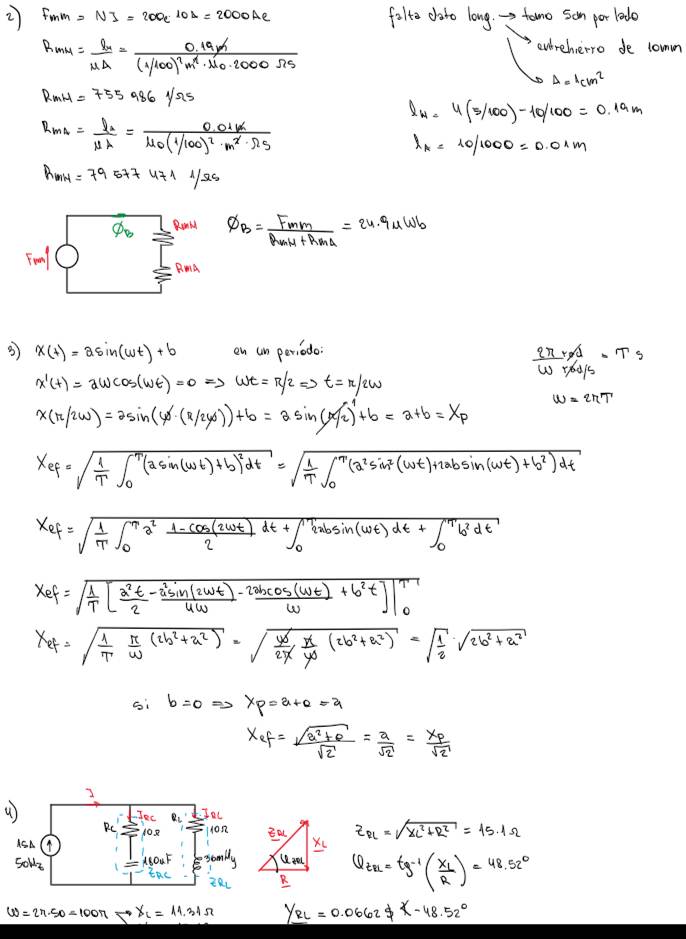 2) Fmm = NI = 200e 10A = 2000Ae
falta dato long. → tomo 5cm por lado
entrehierro de 10mm
A=1cm²
RmM = lM/μA = 0.19m/((1/100)² m² · μ0 · 2000 Ωs)
RmM = 755 986 1/Ωs
lM = 4(5/100) - 10/100 = 0.19m
RmA = lA/μA = 0.01m/(μ0(1/100)² · m² · Ωs)
lA = 10/1000 = 0.01m
RmM = 79 577 471 1/Ωs
ΦB
RmM
Fmm
RmA
ΦB = Fmm/(RmM + RmA) = 24.9μWb
3) x(t) = a sin(wt) + b en un período:
2π rad/(w rad/s) = T s
x'(t) = aw cos(wt) = 0 => wt = π/2 => t = π/2w
w = 2πT
x(π/2w) = a sin(w·(π/2w)) + b = a sin(π/2) 1 + b = a+b = Xp
Xef = √(1/T ∫₀ᵀ (a sin(wt) + b)² dt) = √(1/T ∫₀ᵀ (a² sin²(wt) + 2ab sin(wt) + b²) dt)
Xef = √(1/T ∫₀ᵀ a² (1-cos(2wt))/2 dt + ∫₀ᵀ 2ab sin(wt) dt + ∫₀ᵀ b² dt)
Xef = √(1/T [a²t/2 - a² sin(2wt)/4w - 2ab cos(wt)/w + b²t]) |₀ᵀ
Xef = √(1/T π/w (2b²+a²)) = √(w/2π π/w (2b²+a²)) = √(1/2) · √(2b²+a²)
si b=0 => Xp = a+0 = a
Xef = √(a²+0)/√2 = a/√2 = Xp/√2
4)
I
IRC
IRL
RC
10Ω
RL
10Ω
15A
50Hz
180uF
36mHy
ZRC
ZRL
ZRL
XL
φZRL
R
ZRL = √(XL²+R²) = 15.1Ω
φZRL = tg⁻¹(XL/R) = 48.52°
w = 2π·50 = 100π → XL = 11.31Ω
YRL = 0.0662 $ ∠-48.52°